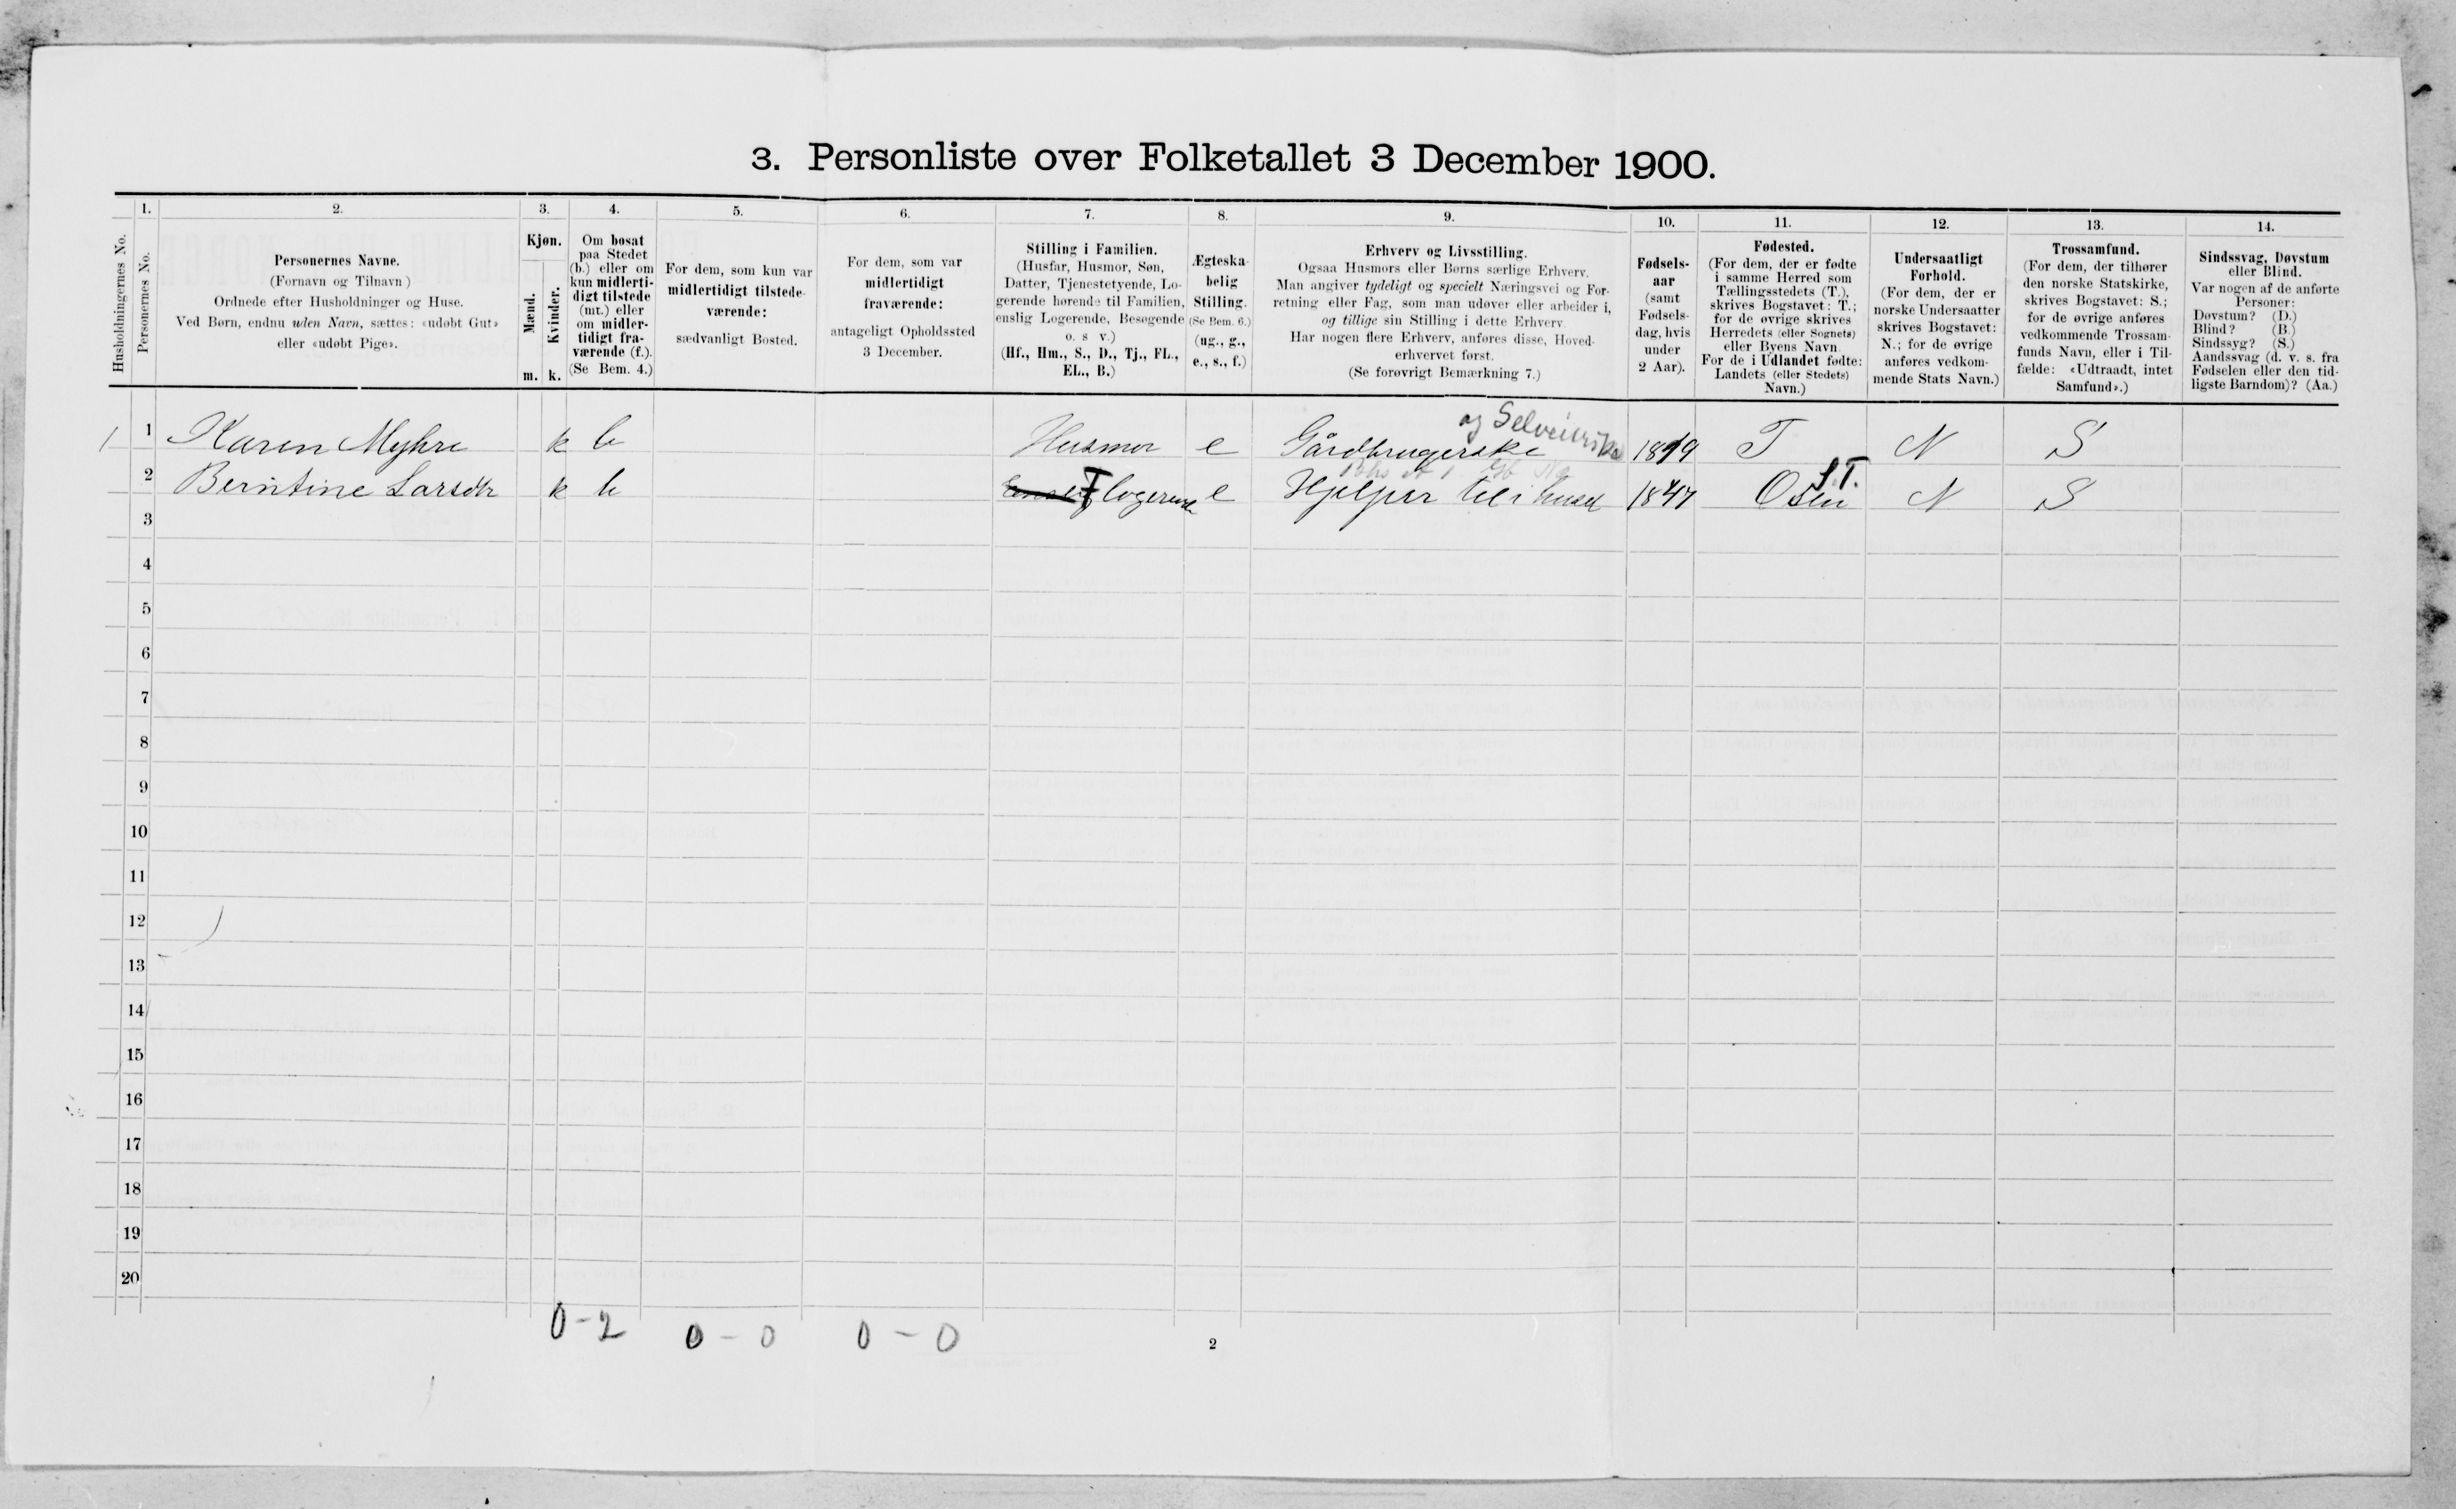 3. Personliste over Folketallet 3 December 1900.
1. 2. 3. 4. 5. 6. 7. 8. 9. 10. 11. 12. 13. 14.
Husholdningernes No.
Personernes No.
Personernes Navne.
(Fornavn og Tilnavn)
Ordnede efter Husholdninger og Huse.
Ved Børn, endnu uden Navn, sættes: «udøbt Gut»
eller «udøbt Pige».
Kjøn.
Mænd.
Kvinder.
m. k.
Om bosat
paa Stedet
(b.) eller om
kun midlerti-
digt tilstede
(mt.) eller
om midler-
tidigt fra-
værende (f.).
(Se Bem. 4.)
For dem, som kun var
midlertidigt tilstede-
værende:
sædvanligt Bosted.
For dem, som var
midlertidigt
fraværende:
antageligt Opholdssted
3 December.
Stilling i Familien.
(Husfar, Husmor, Søn,
Datter, Tjenestetyende, Lo-
gerende hørende til Familien,
enslig Logerende, Besøgende
o. s v.)
(Hf., Hm., S., D., Tj., FL.,
EL., B.)
Ægteska-
belig
Stilling.
(Se Bem. 6.)
(ug., g.,
e., s., f.)
Erhverv og Livsstilling.
Ogsaa Husmors eller Børns særlige Erhverv.
Man angiver tydeligt og specielt Næringsvei og For-
retning eller Fag, som man udøver eller arbeider i,
og tillige sin Stilling i dette Erhverv.
Har nogen flere Erhverv, anføres disse, Hoved-
erhvervet først.
(Se forøvrigt Bemærkning 7.)
Fødsels-
aar
(samt
Fødsels-
dag, hvis
under
2 Aar).
Fødested.
(For dem, der er fødte
i samme Herred som
Tællingsstedets (T.),
skrives Bogstavet: T.;
for de øvrige skrives
Herredets (eller Sognets)
eller Byens Navn.
For de i Udlandet fødte:
Landets (eller Stedets)
Navn.)
Undersaatligt
Forhold.
(For dem, der er
norske Undersaatter
skrives Bogstavet:
N.; for de øvrige
anføres vedkom-
mende Stats Navn.)
Trossamfund.
(For dem, der tilhører
den norske Statskirke,
skrives Bogstavet: S.;
for de øvrige anføres
vedkommende Trossam-
funds Navn, eller i Til-
fælde: «Udtraadt, intet
Samfund».)
Sindssvag, Døvstum
eller Blind.
Var nogen af de anførte
Personer:
Døvstum? (D.)
Blind? (B.)
Sindssyg? (S.)
Aandssvag (d. v. s. fra
Fødselen eller den tid-
ligste Barndom)? (Aa.)
og Selveierske
1 1 Karen Myhre k b Husmor e Gårdbrugerske 1819 T N S
S.T.
2 Berntine Larsdtr k b F logerende e Hjelper til i huset 1847 Osen N S
3
4
5
6
7
8
9
10
11
12
13
14
15
16
17
18
19
20
0-2 0-0 0-0
2